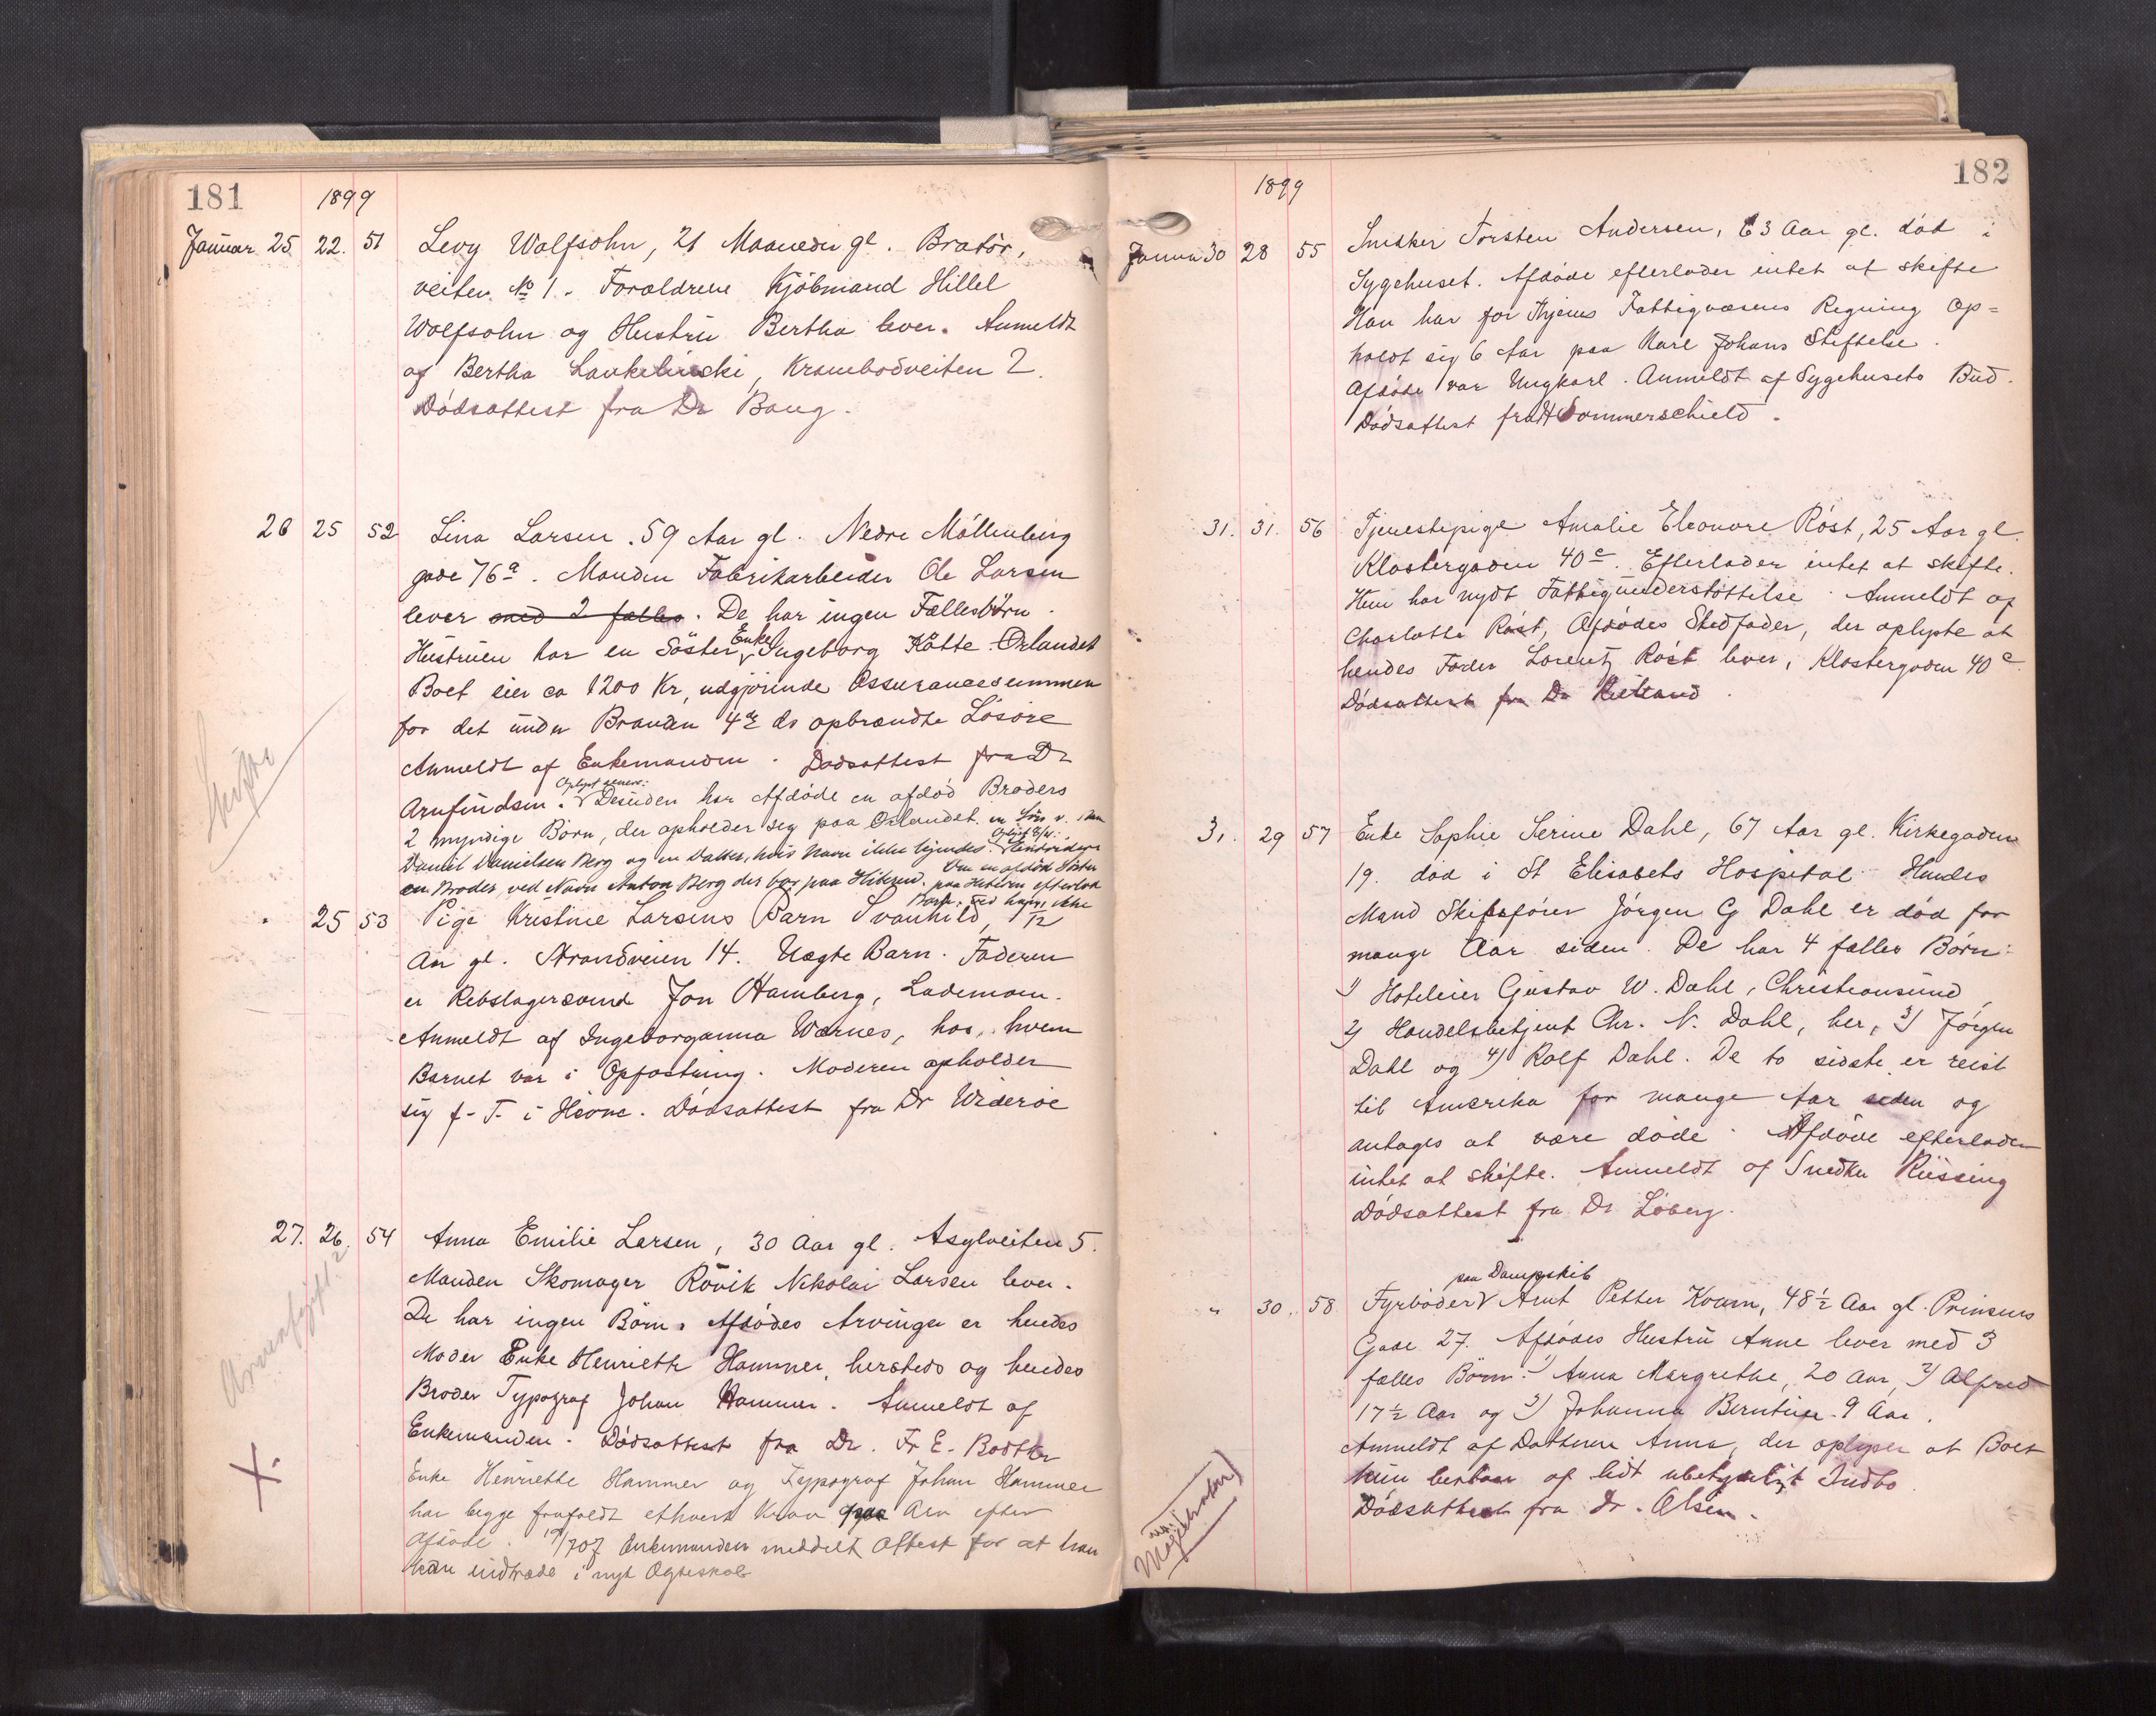 181
1899
Januar 25 22. 51 Levy Wolfsohn, 21 Maaneder gl. Bratör,
veiten No 1. Forældrene Kjöbmand Hillel
Wolfsohn og Hustru Bertha lever. Anmeldt
af Bertha Krambodveiten 2.
Dödsattest fra Dr Bang.
26 25 52 Lina Larsen. 59 Aar gl. Nedre Möllenberg
gade 76a. Manden Fabrikarbeider Ole Larsen
lever med 2 fælles. De har ingen Fællesbörn.
Hustruen har en Söster Enke Ingeborg Kötte Örlandet
Boet eier ca 1200 Kr, udgjörende Assurancesummen
for det under Branden 4de ds opbrændte Lösöre
Anmeldt af Enkemanden. Dödsattest fra Dr
Skifte
Oplyst senere:
Arnfindsen. Desuden har Afdöde en afdöd Broders
2 myndige Börn, der opholder sig paa Örlandet. en Sön v. Navn
Daniel Danielsen Berg og en Datter, hvis Navn ikke kjendes. Oplyst Endvidere
en Broder ved Navn Anton Berg der bor paa Hiteren. Om en afdöd Söster
paa Hiteren efterlod
Börn. ikke
" 25 53 Pige Kristine Larsens Barn Svanhild, 1/12
Aar gl. Strandveien 14. Uægte Barn. Faderen
er Rebslagersvend Jon Hamberg, Lademoen.
Anmeldt af Ingeborganna Wærnes, hos hvem
Barnet var i Opfostring. Moderen opholder
sig f. T. i Hevne. Dödsattest fra Dr Wideröe
27. 26. 54 Anna Emilie Larsen, 30 Aar gl. Asylveiten 5.
Manden Skomager Rövik Nikolai Larsen lever.
De har ingen Börn. Afdödes Arvinger er hendes
Moder Enke Henriette Hammer, hersteds og hendes
Broder Typograf Johan Hammer. Anmeldt af
Enkemanden. Dödsattest fra Dr. Fr. E. Bødtker
Arveafgift?
Enke Henriette Hammer og Typograf Johan Hammer
har begge frafaldt ethvert Krav paa Arv efter
Afdöde. Enkemanden meddelt Attest for at han
kan indtræde i nyt Ægteskab
X.
182
1899
Januar 30 28 55 Snedker Torsten Andersen, 63 Aar gl. död i
Sygehuset. Afdöde efterlader intet at skifte
Han har for Thjems Fattigvæsens Regning op=
holdt sig 6 Aar paa Karl Johans Stiftelse.
Afdöde var Ungkarl. Anmeldt af Sygehusets Bud.
Dödsattest fra Dr Sommerschield.
31. 31. 56 Tjenestepige Amalie Eleonore Röst, 25 Aar gl.
Klostergaden 40c. Efterlader intet at skifte.
Hun har nydt Fattigunderstöttelse. Anmeldt af
Charlotte Röst, Afdödes Stedfader, der oplyste at
hendes Fader Lorentz Röst lever, Klostergaden 40c
Dödsattest fra Dr Kielland.
31. 29 57 Enke Sophie Serine Dahl, 67 Aar gl. Kirkegaden
19. död i St Elisabets Hospital. Hendes
Mand Skibsförer Jörgen G Dahl er död for
mange Aar siden. De har 4 fælles Börn:
1) Hoteleier Gustav W. Dahl, Christiansund,
2) Handelsbetjent Chr. N. Dahl, her, 3) Jörgen
Dahl og 4) Rolf Dahl. De to sidste er reist
til Amerika for mange Aar siden og
antages at være döde. Afdöde efterlader
intet at skifte. Anmeldt af Snedker Riissing
Dödsattest fra Dr Löberg.
" 30. 58 Fyrböder paa Dampskib Arnt Petter Kvam, 48 1/2 Aar gl. Prinsens
Gade 27. Afdödes Hustru Anne lever med 3
fælles Börn: 1) Anna Margrethe, 20 Aar, 2) Alfred
17 1/2 Aar og 3) Johanna Berntine 9 Aar.
Anmeldt af Datteren Anna, der oplyser at Boet
kun bestaar af lidt ubetydeligt Indbo
Dödsattest fra Dr. Olsen.